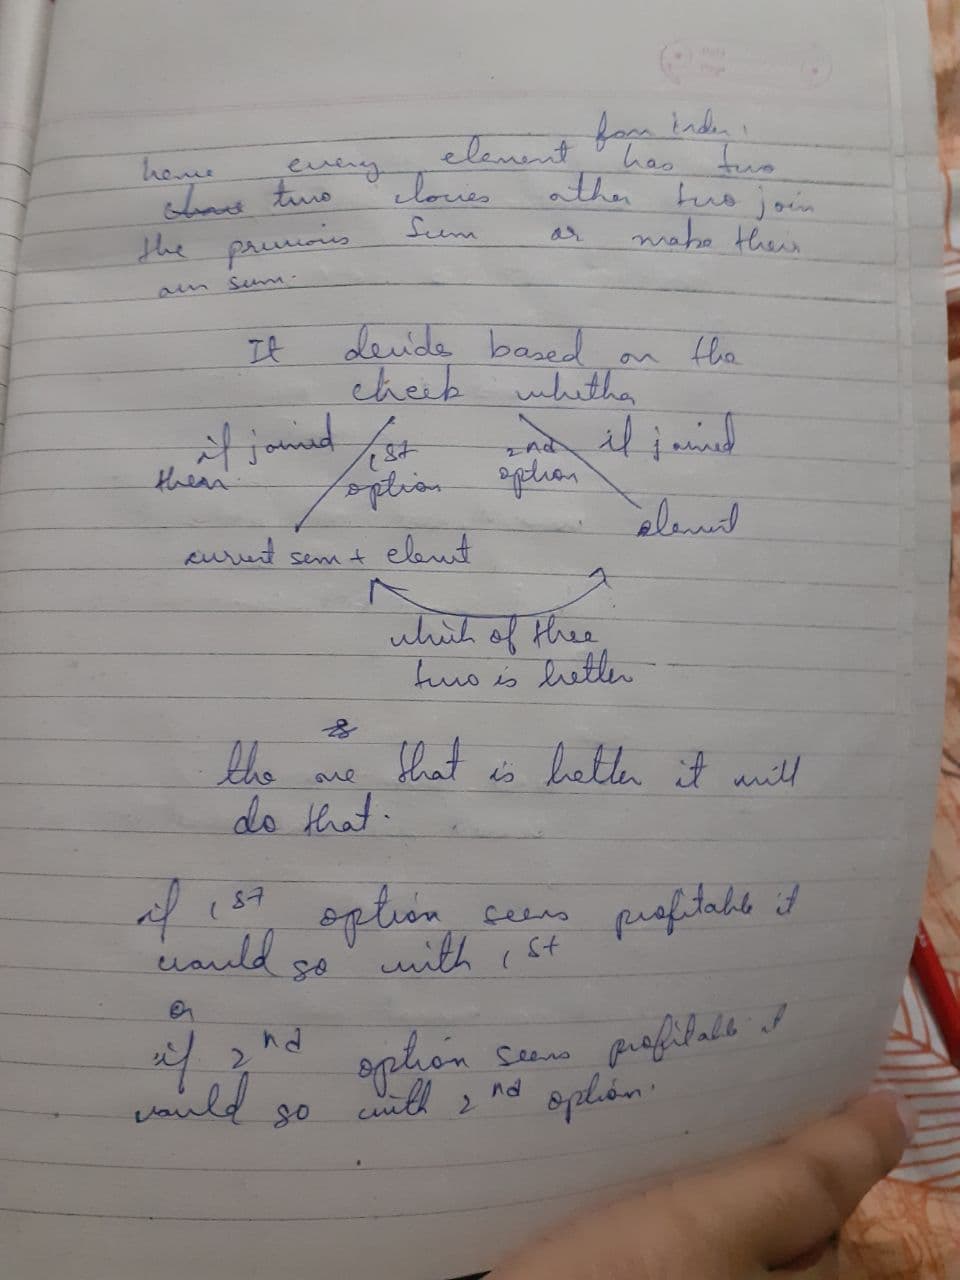 from index 1
hence every element has two
two choices either two join
the previous sum or make their
own sum.
It decide based on the
check whether
if joined 1st 2nd if joined
then option option
element
current sum + element
which of these
two is better
the one that is better it will
do that.
if 1st option seems profitable it
would go with 1st
or
if 2nd option seems profitable it
would go with 2nd option.